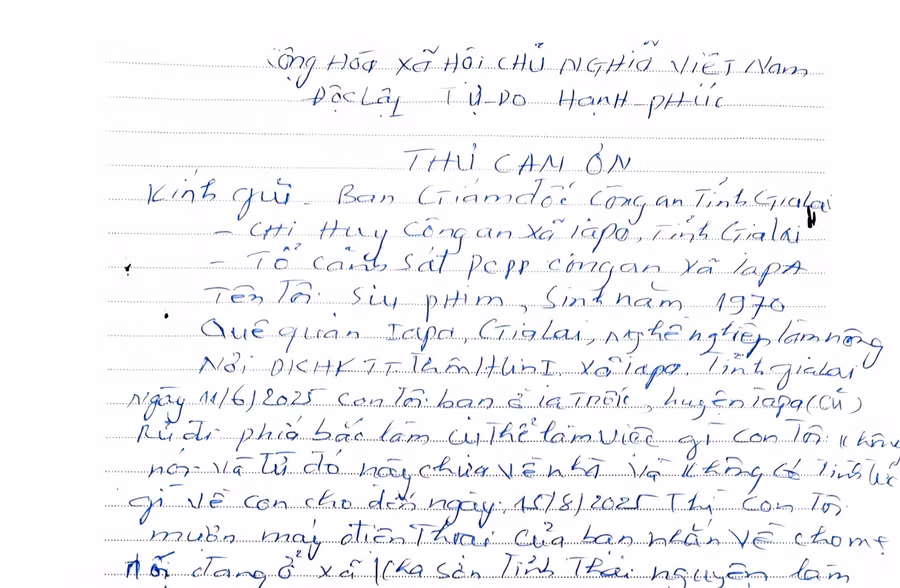 Cộng Hóa xã Hôi CHỦ NGHĨA VIỆT Nam
Độc Lập Tự Do HạnH phúc
THƯ CAM ƠN
Kính gửi - Ban Giám đốc Công an Tỉnh Gialai
- CHỉ Huy Công an xã iapa, Tỉnh Gialai
- Tổ cảnh sát pcpp công an xã iapA
Tên Tôi: Siu pHim, Sinh năm 1970
Quê quán Iapa, Gialai, Nghề nghiệp làm nông
Nơi ĐKHKTT Thôm I, xã iapa. Tỉnh gialai
Ngày 11/6/2025 con Tôi ban ở ia Trốk, huyện iapa (Cũ)
Rủ đi phía bắc làm cụ Thể làm việc gì con Tôi không
nói và Từ đó nảy chưa về nhà và không có Tinh tức
gì về con cho đến ngày: 15/8/2025 Thì con Tôi
muôn máy điện Thoại của ban nhắn về cho mẹ
nói đang ở xã Kha Sơn Tỉnh Thái nguyên làm